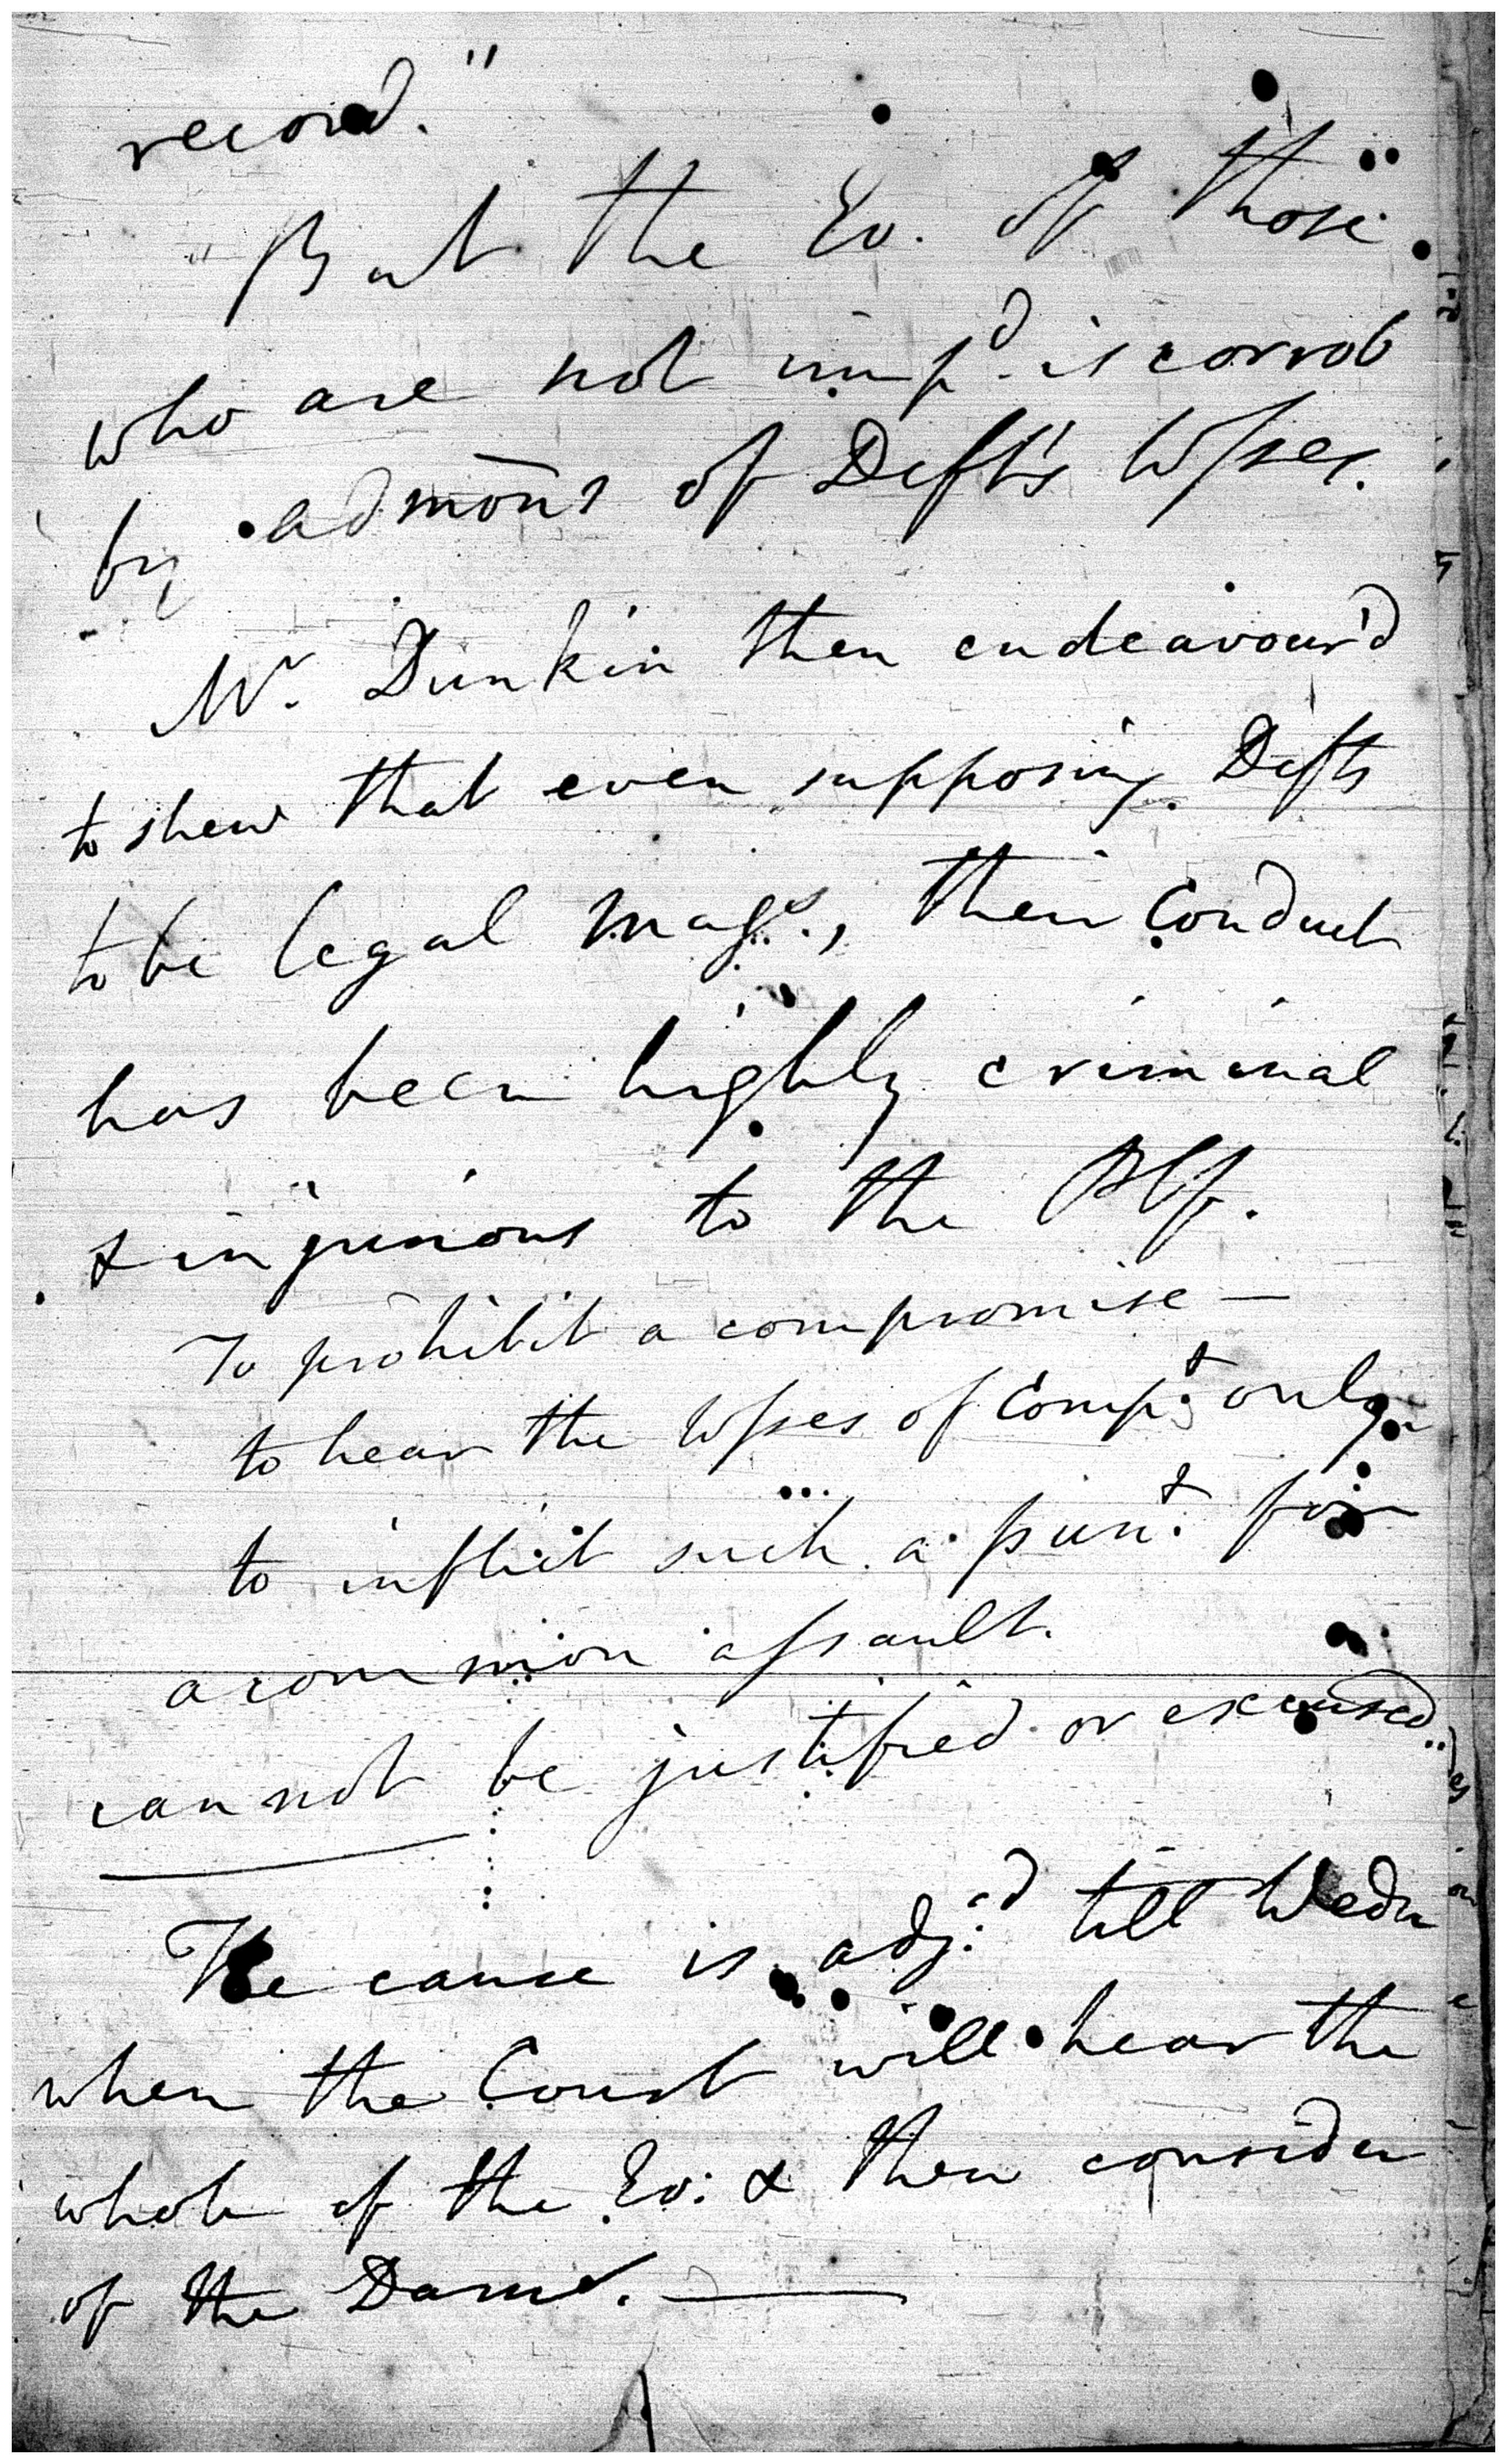 record."
"But the Ev. of those
who are not imp.d is corrob
by admōns of Deft's Wsses.
Mr. Dunkin then endeavour'd
to shew that even supposing Defts
to be legal Mags., their Conduct
has been highly criminal
& injurious to the Plf.
To prohibit a compromise —
to hear the Wsses of Comp.t only
to inflict such a pun.t for
a common assault.
cannot be justified or excused.
The cause is adj.d till Wedn
when the Court will hear the
whole of the Ev: & then consider
of the Dams. —